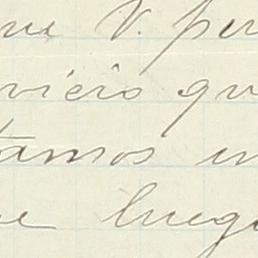 ue V. per
vicio qu
tamos en
ue luego